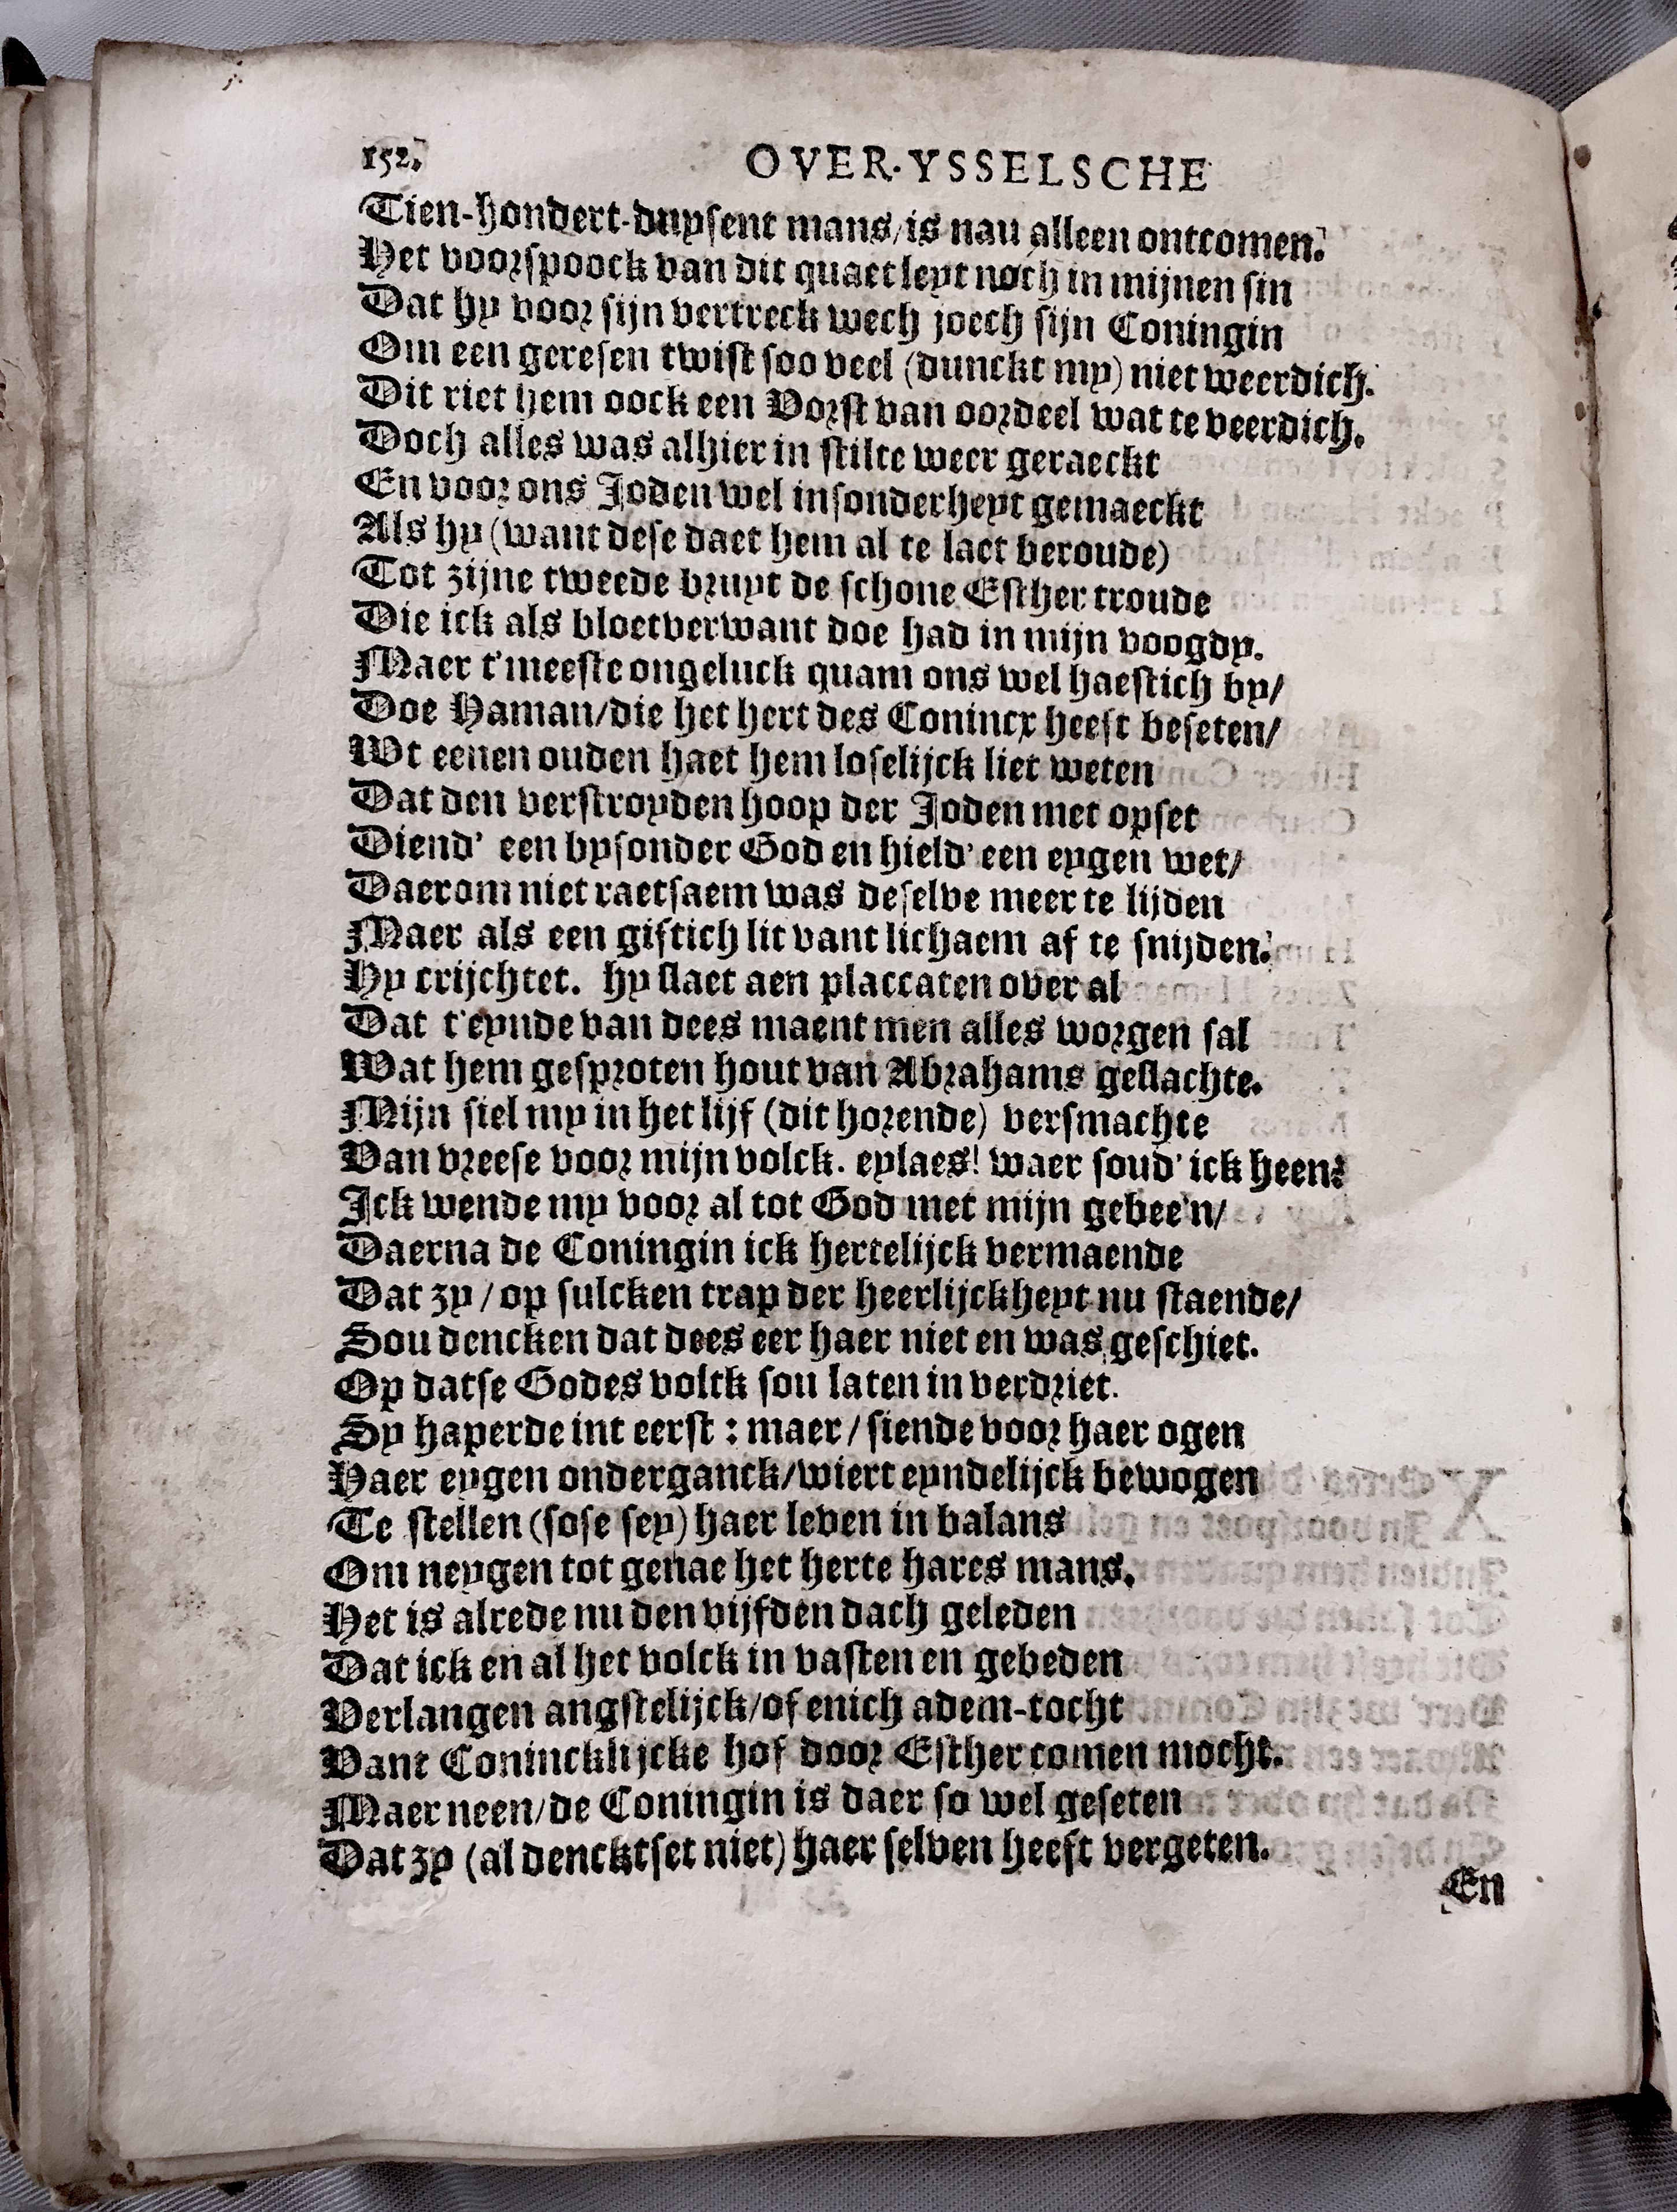 152.
OVER-YSSELSCHE
Tien-hondert-duysent mans/is nau alleen ontcomen.
Het voorspoock van dit quaet leyt noch in mijnen sin
Dat hy voor sijn vertreck wech joech sijn Coningin
Om een geresen twist soo veel (dunckt my) niet weerdich.
Dit riet hem oock een Vorst van oordeel wat te veerdich.
Doch alles was alhier in stilte weer geraeckt
En voor ons Joden wel insonderheyt gemaeckt
Als hy (want dese daet hem al te laet beroude)
Tot zijne tweede bruyt de schone Esther troude
Die ick als bloetverwant doe had in mijn voogdy.
Maer t'meeste ongeluck quam ons wel haestich by/
Doe Haman/die het hert des Conincx heeft beseten/
Wt eenen ouden haet hem loselijck liet weten
Dat den verstroyden hoop der Joden met opset
Diend' een bysonder God en hield' een eygen wet/
Daerom niet raetsaem was deselve meer te lijden
Maer als een giftich lit vant lichaem af te snijden.
Hy crijchtet. hy slaet aen placcaten over al
Dat t'eynde van dees maent men alles worgen sal
Wat hem gesproten hout van Abrahams geslachte.
Mijn siel my in het lijf (dit horende) versmachte
Van vreese voor mijn volck. eylaes! waer soud' ick heen?
Ick wende my voor al tot God met mijn gebee'n/
Daerna de Coningin ick hertelijck vermaende
Dat zy/op sulcken trap der heerlijckheyt nu staende/
Sou dencken dat dees eer haer niet en was geschiet.
Op datse Godes volck sou laten in verdriet.
Sy haperde int eerst : maer/siende voor haer ogen
Haer eygen onderganck/wiert eyndelijck bewogen
Te stellen (sose sey) haer leven in balans
Om neygen tot genae het herte hares mans.
Het is alrede nu den vijfden dach geleden
Dat ick en al het volck in vasten en gebeden
Verlangen angstelijck/of enich adem-tocht
Vant Conincklijcke hof door Esther comen mocht.
Maer neen/de Coningin is daer so wel geseten
Dat zy (al dencktset niet) haer selven heeft vergeten.
En